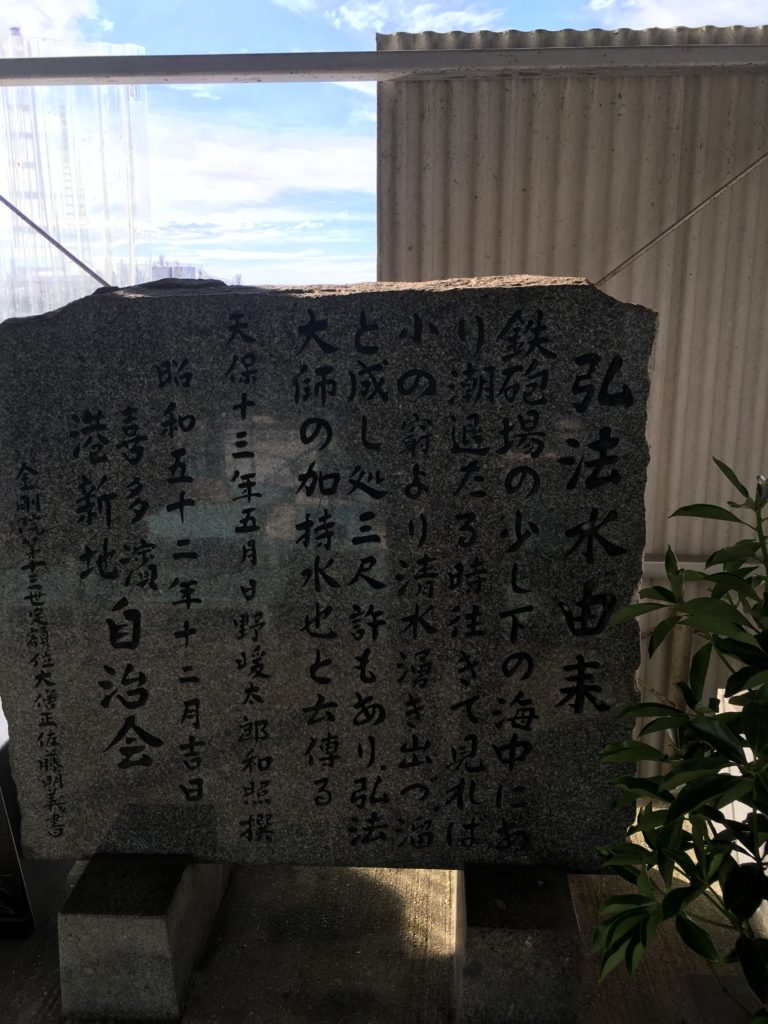 弘法水由来
鉄砲場の少し下の海中にあ
り潮退たる時往きて見れば
小の窮より清水湧き出づ溜
と成し処三尺許もあり弘法
大師の加持水也と云傳る
天保十三年五月日野暖太郎和照撰
昭和五十二年十二月吉日
喜多濱自治会
港新地
金剛院第十三世定額位大僧正佐藤明義書